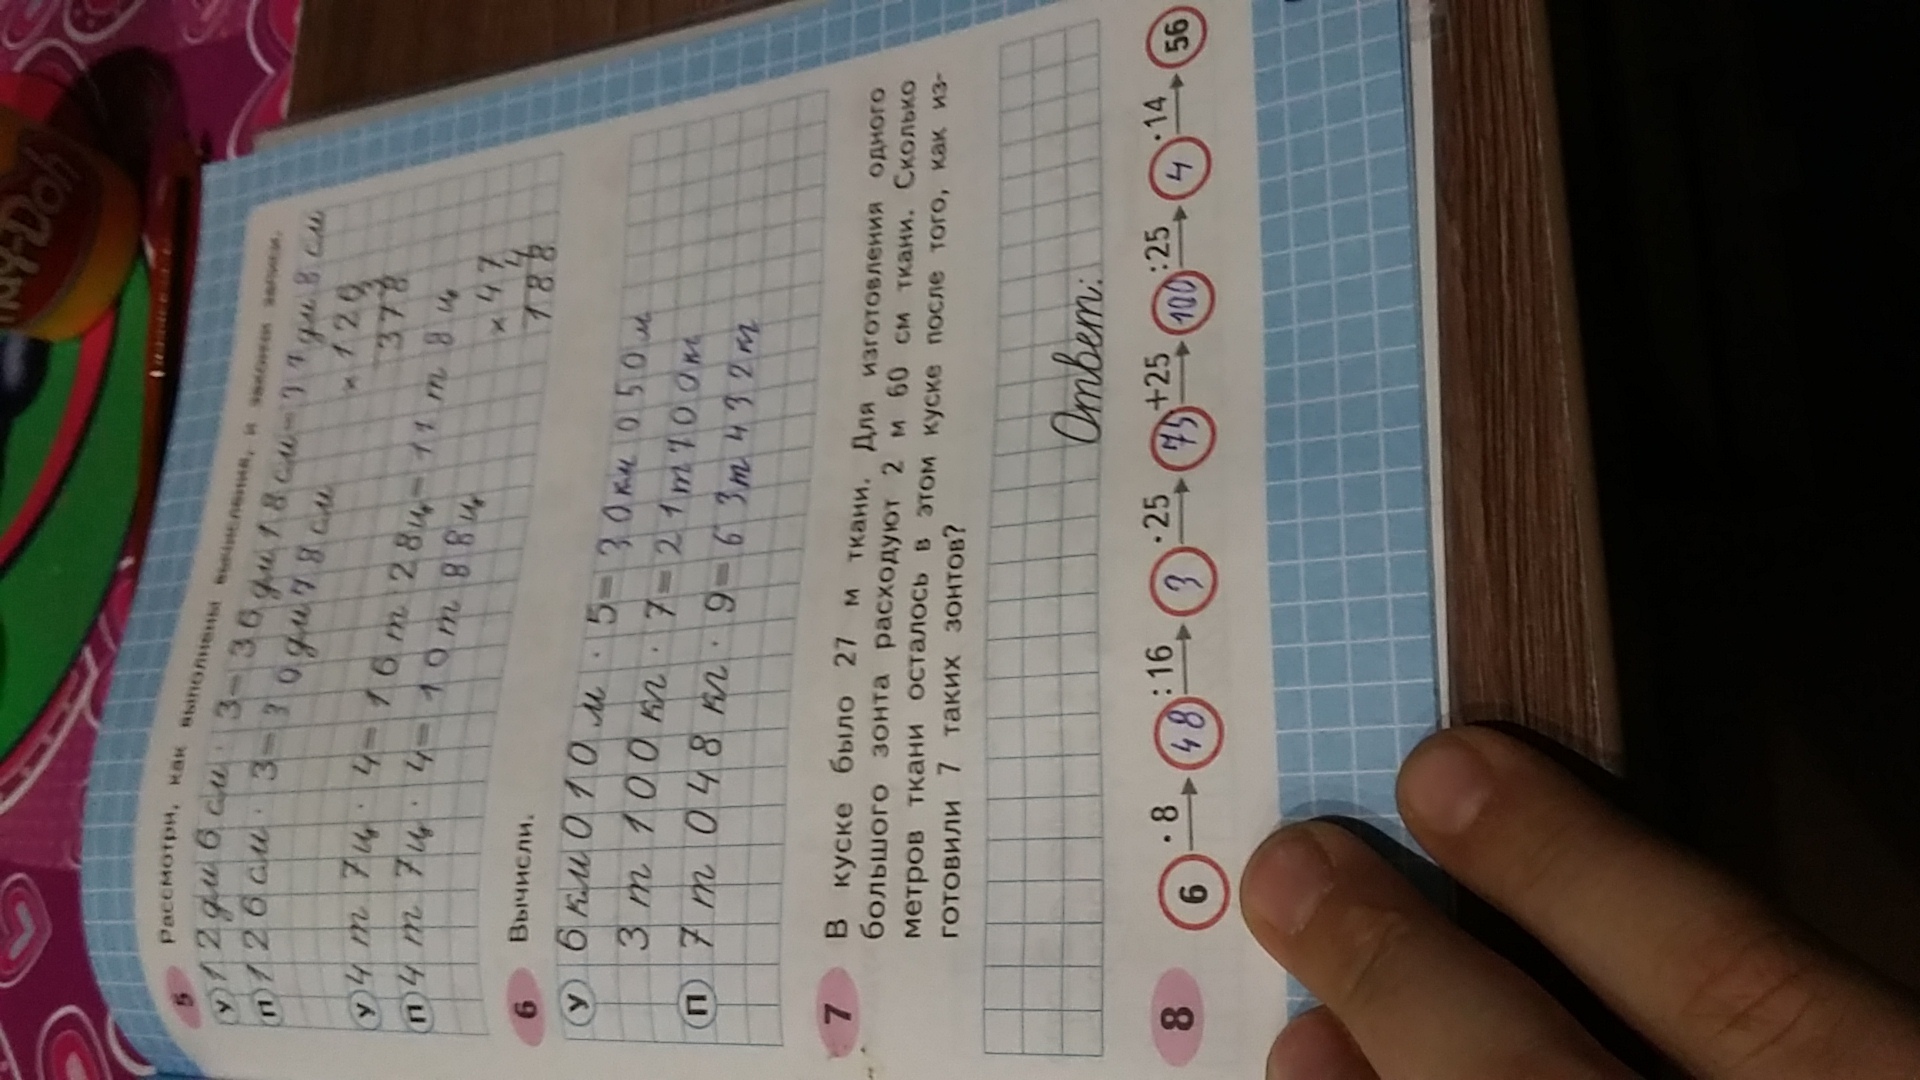 5 Рассмотри, как выполнены вычисления, и закончи записи.
У 12дм 6см · 3=36дм 18см=37дм 8см
П 126см · 3=3 0дм 78см
×126
3
378
У 4т 7ц · 4=16т 28ц=11т 8ц
П 4т 7ц · 4=10т 88ц
×47
4
188
6 Вычисли.
У 6км 010м · 5=30км 050м
3т 100кг · 7=21т 700к
П 7т 048кг · 9=63т 432к
7 В куске было 27 м ткани. Для изготовления одного
большого зонта расходуют 2 м 60 см ткани. Сколько
метров ткани осталось в этом куске после того, как из-
готовили 7 таких зонтов?
Ответ:
8 6 ·8 48 :16 3 ·25 75 +25 100 :25 4 ·14 56